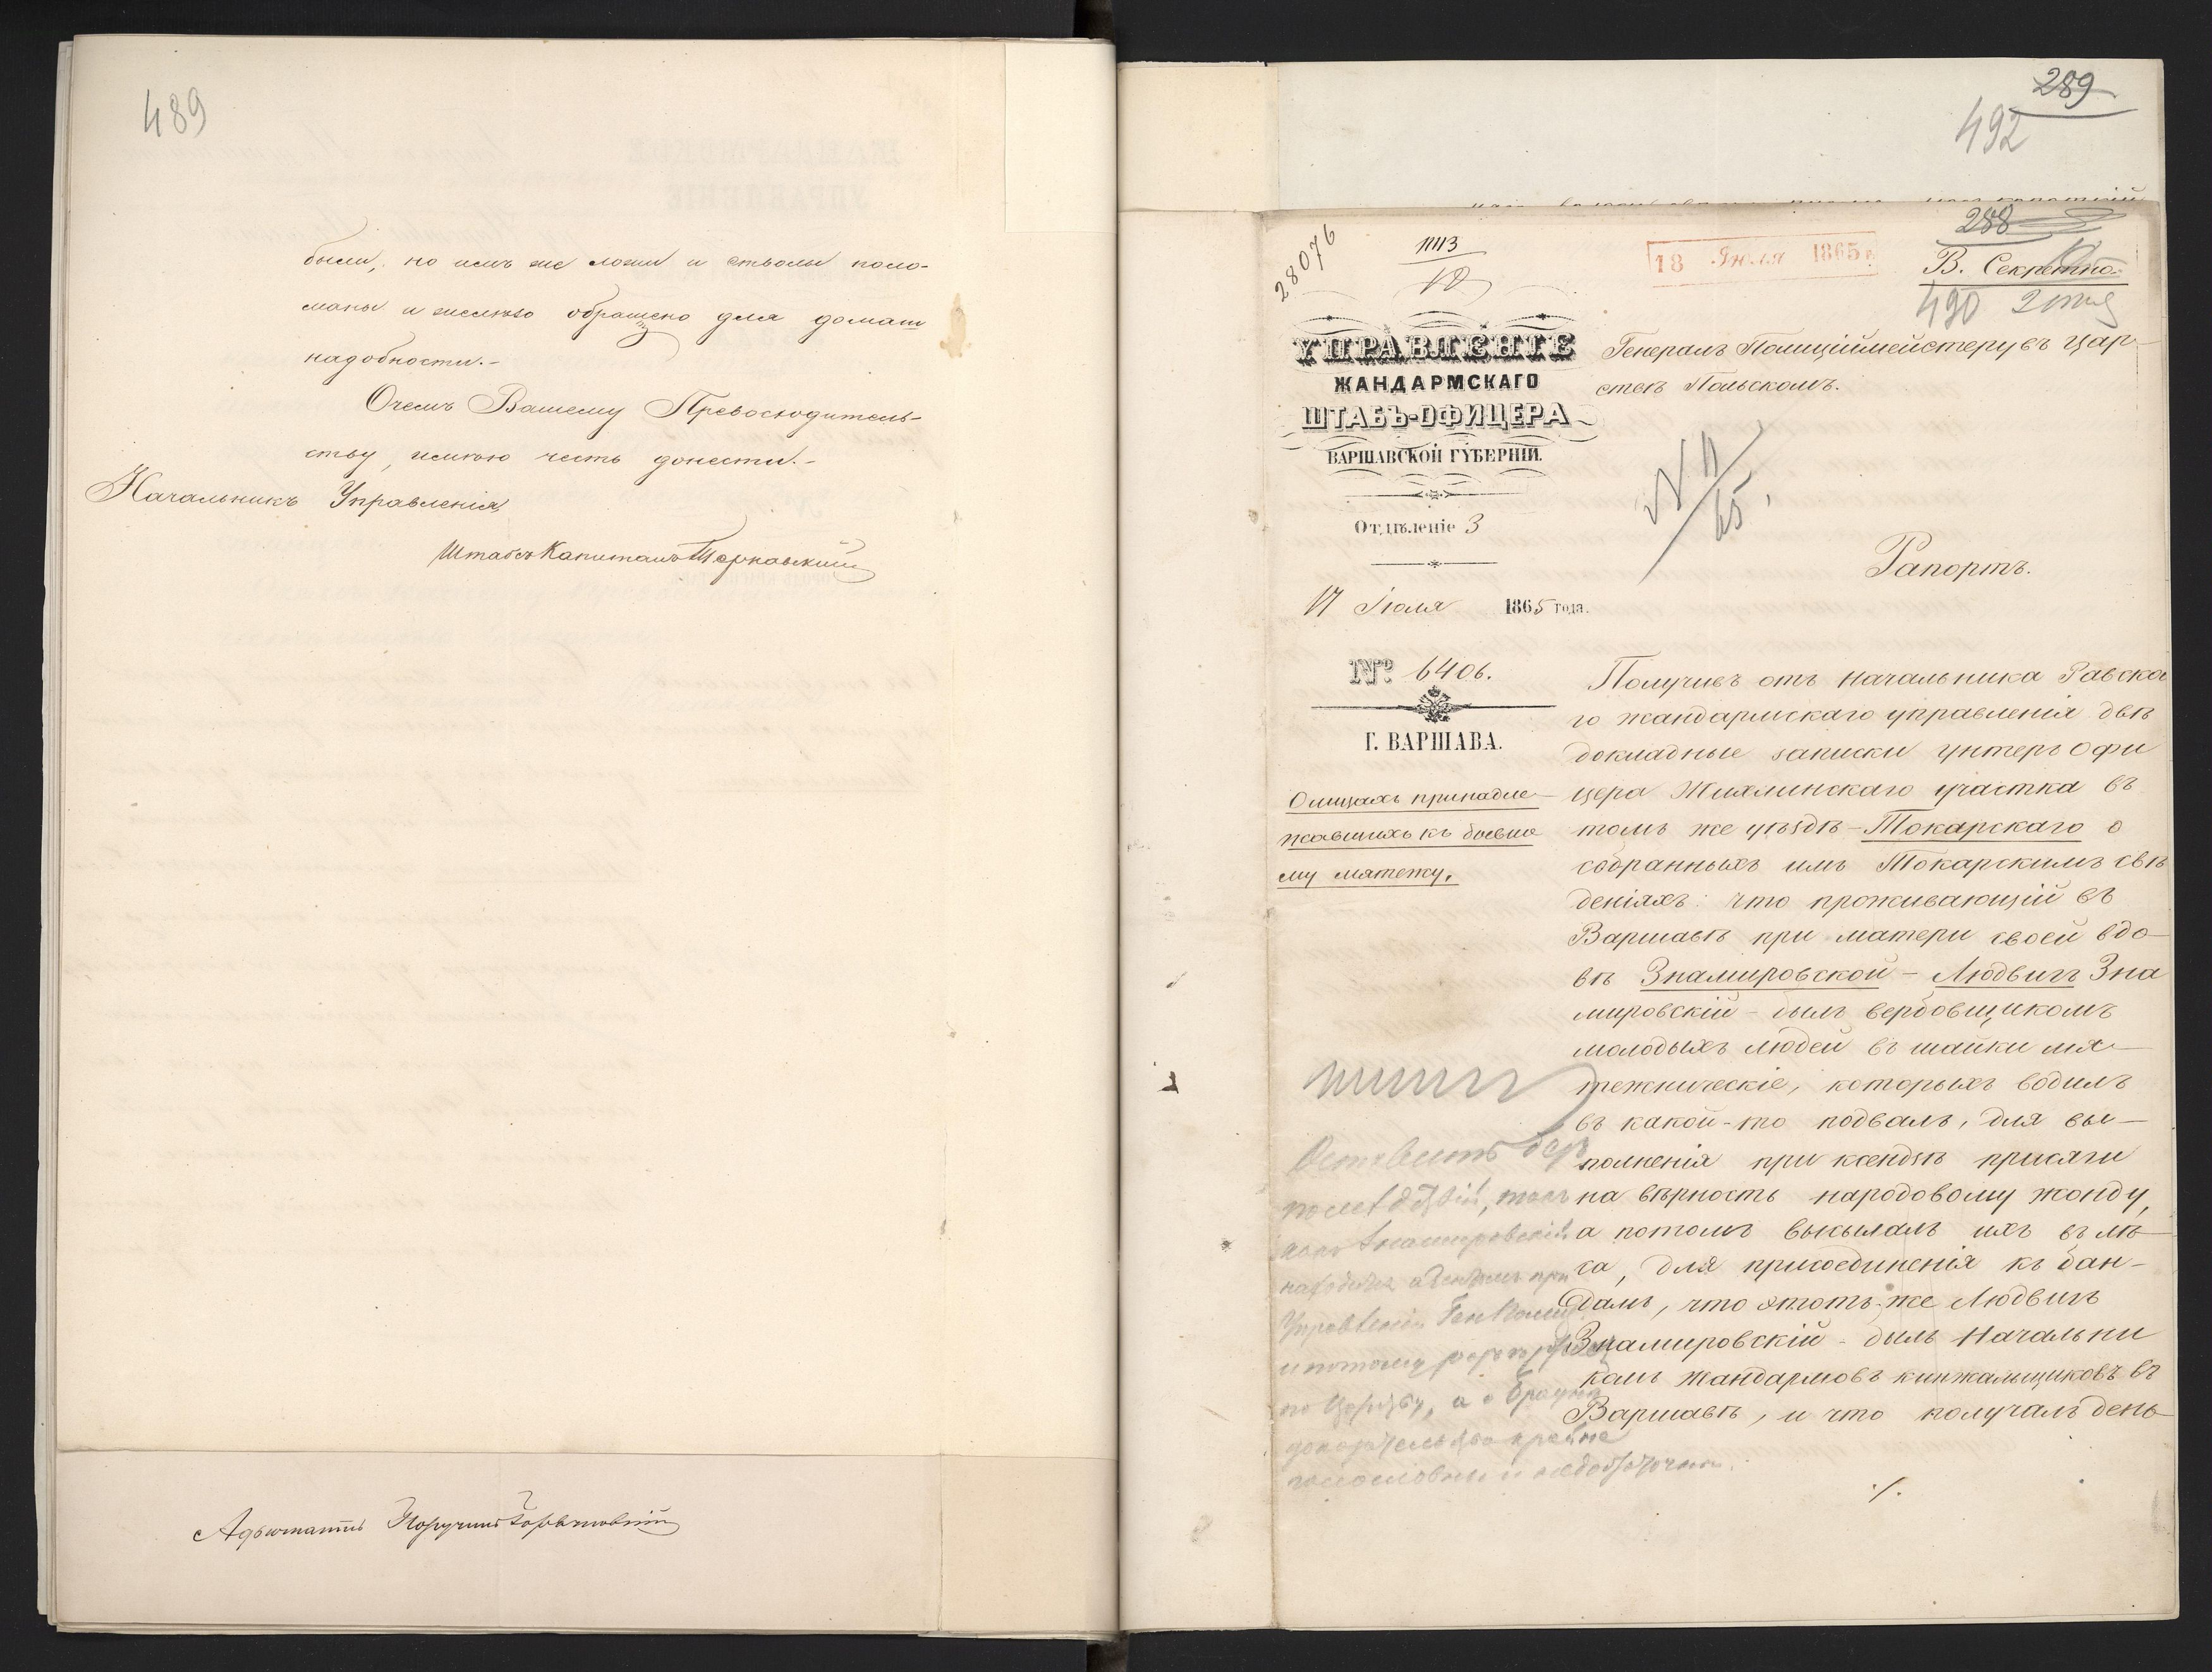 489
были, но имъ же ложи и стволы поло-
маны и желѣзо обращено для домаш
надобности.-
Очемъ Вашему Превосходитель-
ству, имѣю честь донести.-
Начальникъ Управленія,
Штабсъ Капитанъ
Адъютантъ Поручикъ
289
492
288
28076
1113
18 Июля 1865 г
В. Секретно.
490
УПРАВЛЕНІЕ
ЖАНДАРМСКАГО
ШТАБЪ-ОФИЦЕРА
ВАРШАВСКОЙ ГУБЕРНІИ.
Отдѣленіе 3
17 Іюля 1865 года.
№ 6406.
Г. ВАРШАВА.
О лицахъ принадле-
жавшихъ къ бывше
му мятежу.
Генералъ Полиціймейстеру въ Цар-
ствѣ Польскомъ.
N 11/65.
Рапортъ.
Получивъ отъ Начальника Равска
го жандармскаго управленія двѣ
докладные записки унтеръ офи
цера участка въ
томъ же уѣздѣ - Токарскаго о
собранныхъ имъ Токарскимъ свѣ
деніяхъ: что проживающій въ
Варшавѣ при матери своей вдо-
вѣ Знамировской - Людвигъ Зна
мировскій - былъ вербовщикомъ
молодыхъ людей въ шайки мя-
тежническіе, которыхъ водилъ
въ какой-то подвалъ, для вы-
полненія при ксендзѣ присяги
на вѣрность народовому жонду,
а потомъ высылалъ ихъ въ лѣ-
са, для присоединенія къ бан-
дамъ, что этотъ-же Людвигъ
Знамировскій - былъ Начальни
комъ жандармовъ кинжальщиковъ въ
Варшавѣ, и что получалъ день-
./.
Оставить безъ
послѣдствій, такъ
какъ Знамировскій
находится агентомъ при
Управленіи Ген Полиц
и потому
а о
доказательства крайне
голословны и недостаточны.